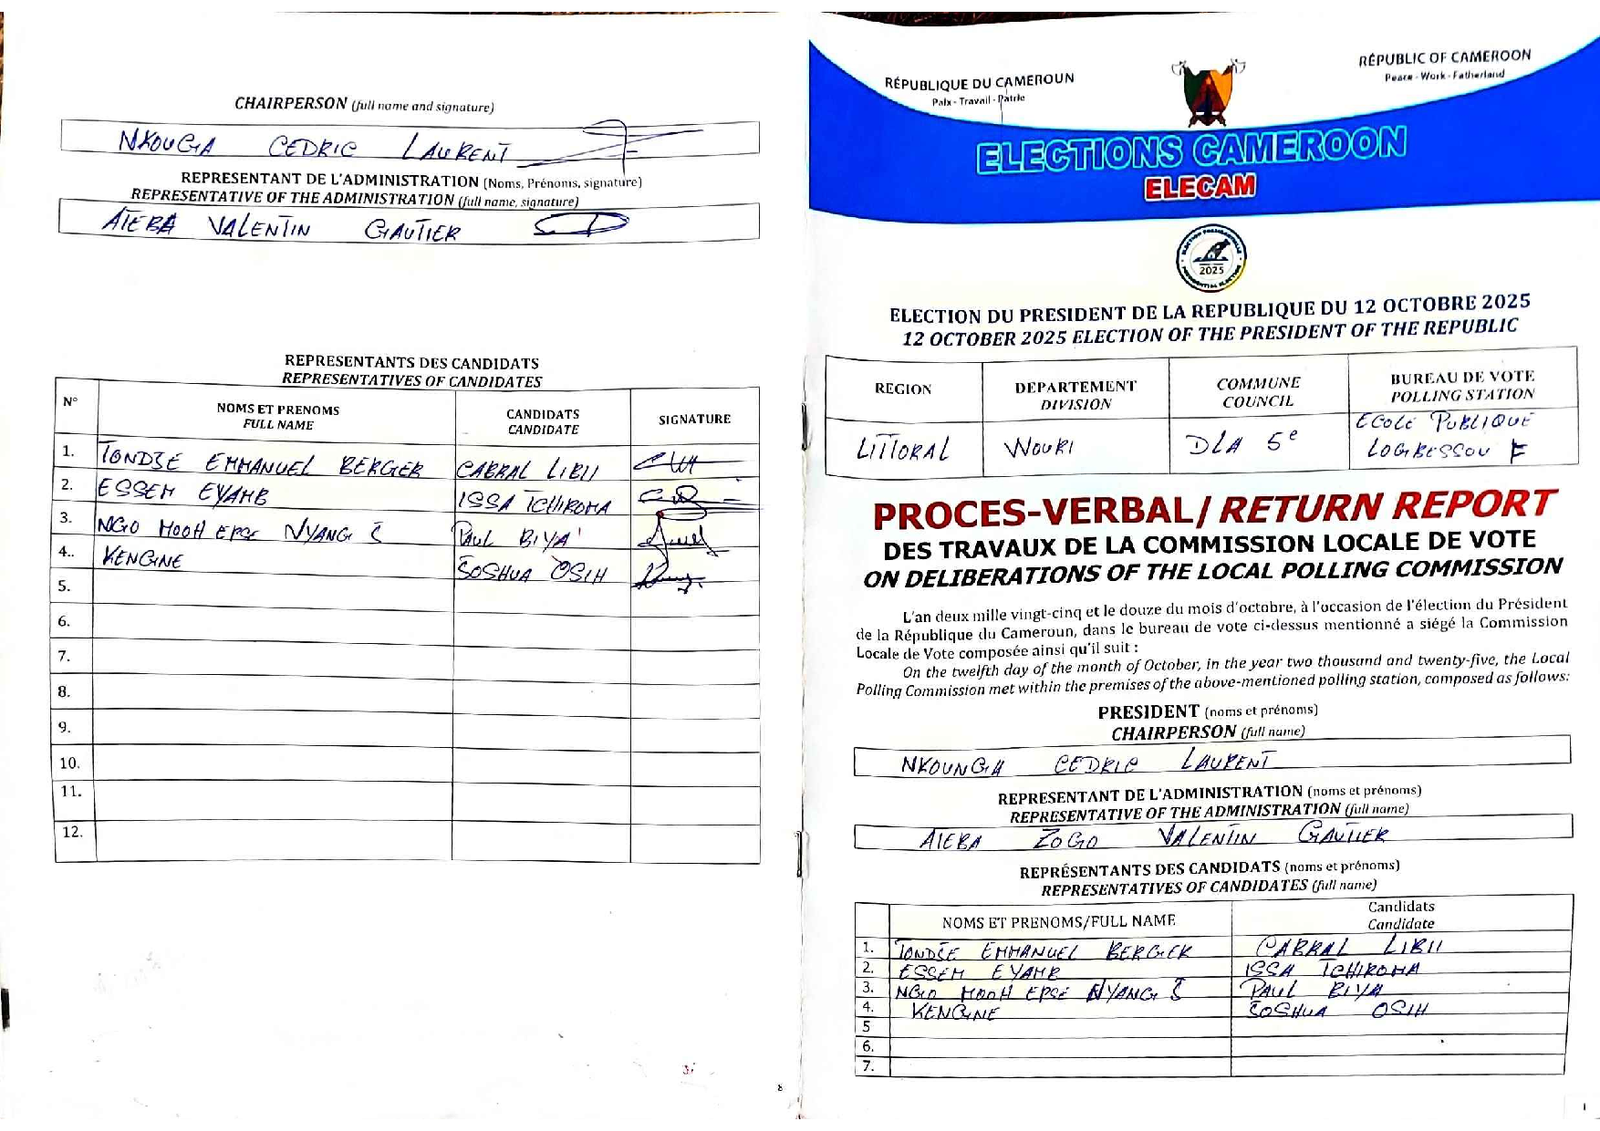 CHAIRPERSON (full name and signature)
NKOUGA CEDRIC LAURENT
REPRESENTANT DE L'ADMINISTRATION (Noms, Prénoms, signature)
REPRESENTATIVE OF THE ADMINISTRATION (full name, signature)
ATEBA VALENTIN GAUTIER
REPRESENTANTS DES CANDIDATS
REPRESENTATIVES OF CANDIDATES
N° NOMS ET PRENOMS CANDIDATS SIGNATURE
FULL NAME CANDIDATE
1. TONDJE EMMANUEL BERGER CABRAL LIBII
2. ESSEM EYAMB ISSA TCHIROMA
3. NGO MOOH EPSE NYANG J PAUL BIYA
4.. KENGINE JOSHUA OSIH
5.
6.
7.
8.
9.
10.
11.
12.
8
RÉPUBLIQUE DU CAMEROUN
Paix - Travail - Patrie
RÉPUBLIC OF CAMEROON
Peace - Work - Fatherland
ELECTIONS CAMEROON
ELECAM
2025
ELECTION DU PRESIDENT DE LA REPUBLIQUE DU 12 OCTOBRE 2025
12 OCTOBER 2025 ELECTION OF THE PRESIDENT OF THE REPUBLIC
REGION DEPARTEMENT COMMUNE BUREAU DE VOTE
DIVISION COUNCIL POLLING STATION
LITTORAL WOURI DLA 5e ECOLE PUBLIQUE
LOGBESSOU F
PROCES-VERBAL/RETURN REPORT
DES TRAVAUX DE LA COMMISSION LOCALE DE VOTE
ON DELIBERATIONS OF THE LOCAL POLLING COMMISSION
L'an deux mille vingt-cinq et le douze du mois d'octobre, à l'occasion de l'élection du Président
de la République du Cameroun, dans le bureau de vote ci-dessus mentionné a siégé la Commission
Locale de Vote composée ainsi qu'il suit :
On the twelfth day of the month of October, in the year two thousand and twenty-five, the Local
Polling Commission met within the premises of the above-mentioned polling station, composed as follows:
PRESIDENT (noms et prénoms)
CHAIRPERSON (full name)
NKOUNGA CEDRIC LAURENT
REPRESENTANT DE L'ADMINISTRATION (noms et prénoms)
REPRESENTATIVE OF THE ADMINISTRATION (full name)
ATEBA ZOGO VALENTIN GAUTIER
REPRÉSENTANTS DES CANDIDATS (noms et prénoms)
REPRESENTATIVES OF CANDIDATES (full name)
NOMS ET PRENOMS/FULL NAME Candidats
Candidate
1. TONDJE EMMANUEL BERGER CABRAL LIBII
2. ESSEM EYAMB ISSA TCHIROMA
3. NGO MOOH EPSE NYANG J PAUL BIYA
4. KENGINE JOSHUA OSIH
5
6.
7.
1